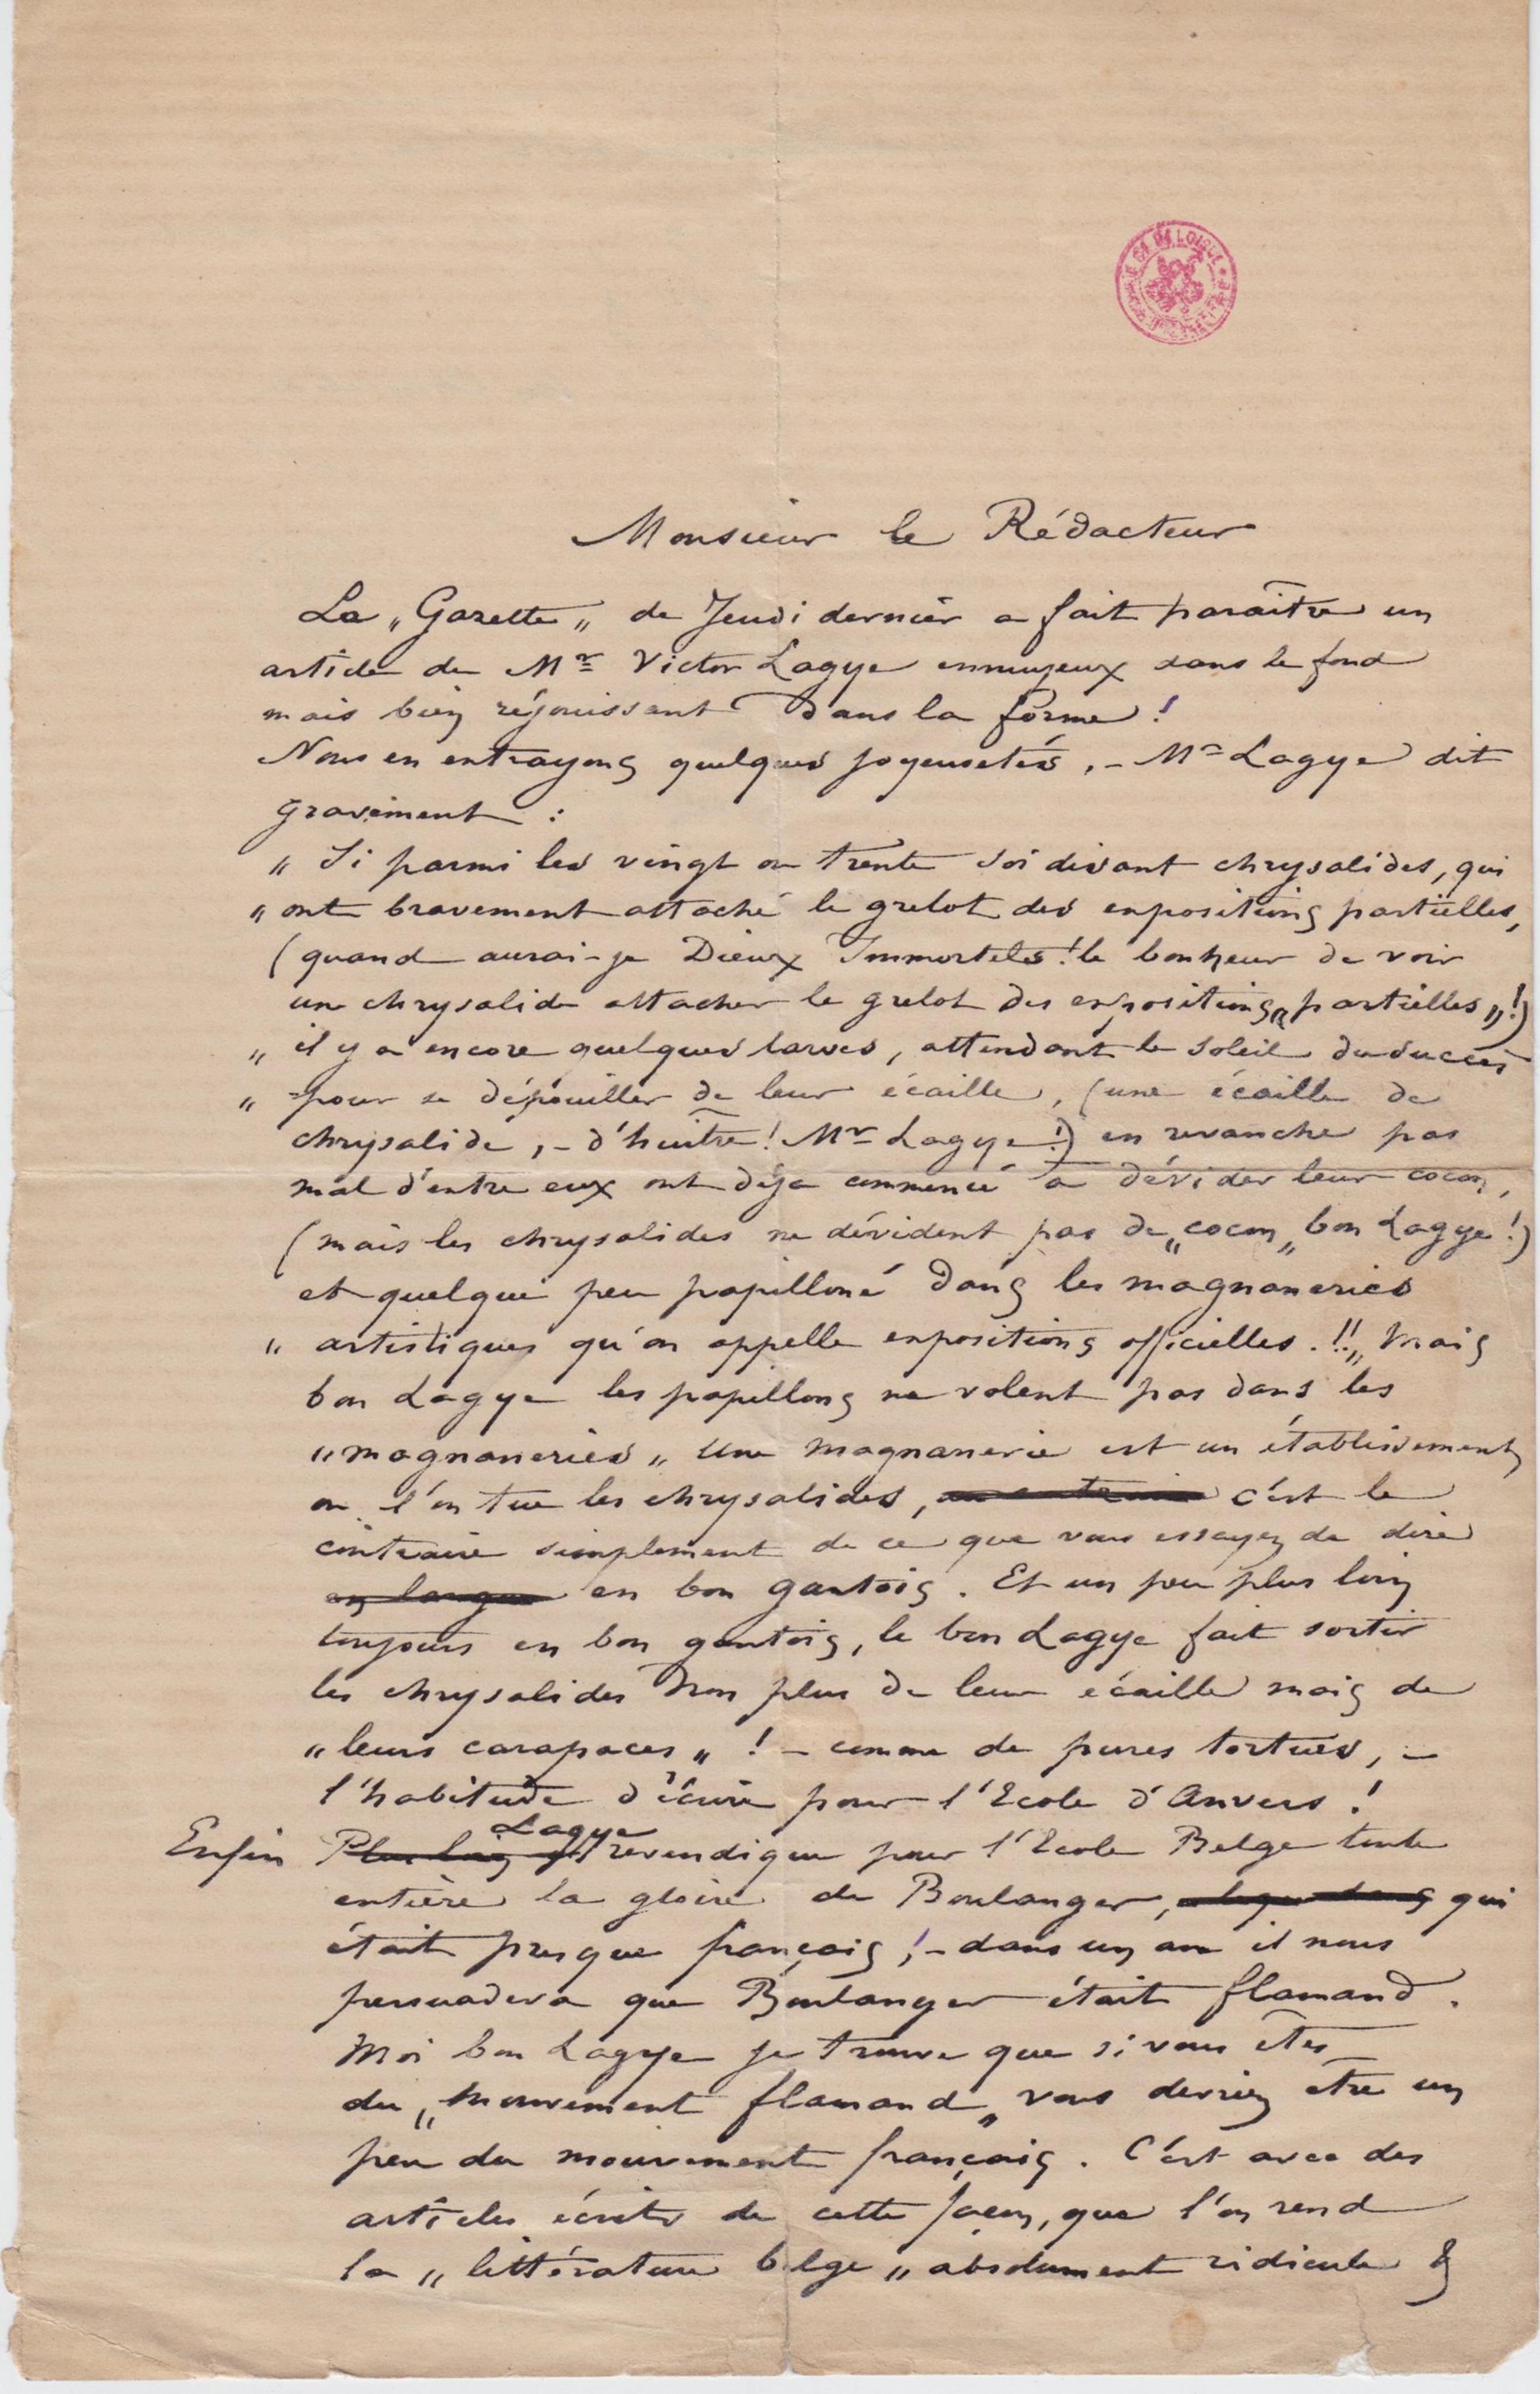 Monsieur le Rédacteur
La „Gazette„ de Jeudi dernier a fait paraître un
article de Mr Victor Lagye ennuyeux dans le fond
mais bien réjouissant dans la forme !
Nous en extrayons quelques joyeusetés, – Mr Lagye dit
gravement :
„ Si parmi les vingt ou trente soi disant chrysalides, qui
„ ont bravement attaché le grelot des expositions partielles,
(quand aurai-je Dieux Immortels ! le bonheur de voir
une chrysalide attacher le grelot des expositions „partielles„ !)
„ il y a encore quelques larves, attendant le soleil du succès
„ pour se dépouiller de leur écaille, (une écaille de
chrysalide, – d'huître ! Mr Lagye !) en revanche pas
mal d'entre eux ont déja commencé à dévider leur cocon,
(mais les chrysalides ne dévident pas de „cocon„ bon Lagye !)
et quelque peu papilloné dans les magnaneries
„ artistiques qu'on appelle expositions officielles. !!„ Mais
bon Lagye les papillons ne volent pas dans les
„magnaneries„ Une magnanerie est un établissement
ou l'on tue les chrysalides, au contraire c'est le
contraire simplement de ce que vous essayez de dire
en langue en bon gantois. Et un peu plus loin
toujours en bon gantois, le bon Lagye fait sortir
les chrysalides non plus de leur écaille mais de
„leurs carapaces„ ! – comme de pures tortues, –
l'habitude d'écrire pour l'Ecole d'Anvers !
Enfin Plus loin il Lagye revendique pour l'Ecole Belge toute
entière la gloire de Boulanger, qui
était presque français ! – dans un an il nous
persuadera que Boulanger était flamand.
Moi bon Lagye je trouve que si vous êtes
du „mouvement flamand„ vous devriez être un
peu du mouvement français. C'est avec des
articles écrits de cette façon, que l'on rend
la „littérature belge„ absolument ridicule &